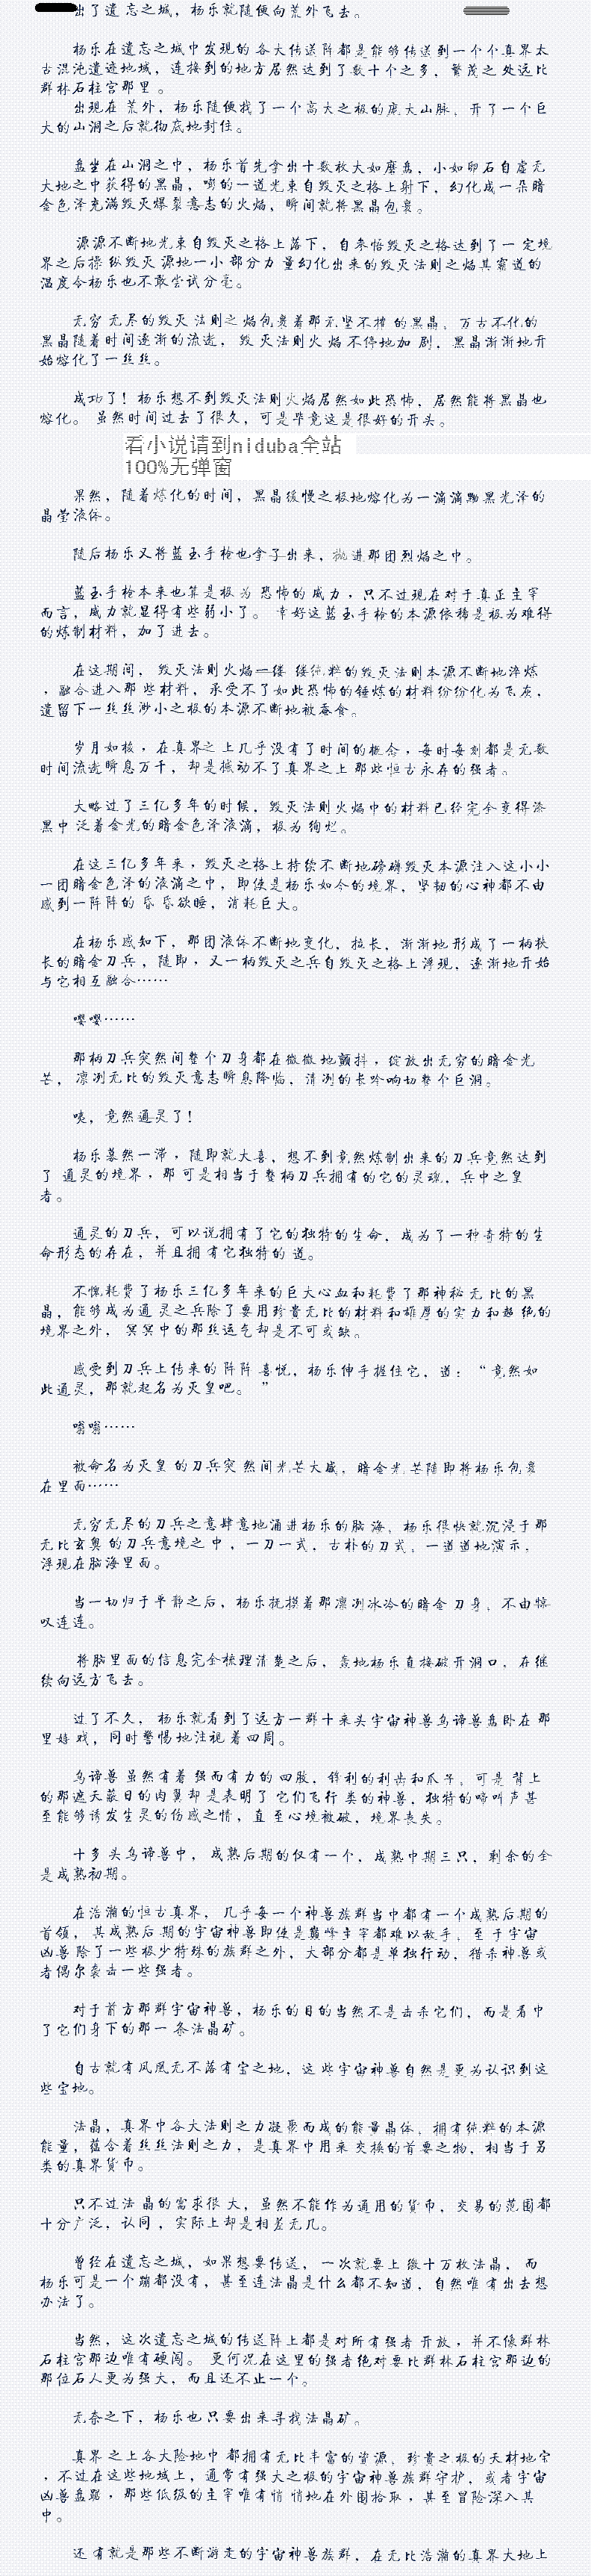 出了遗 忘之城，杨乐就随便向荒外飞去。
杨乐在遗忘之城中发现的各大传送阵都是能够传送到一个个真界太
古混沌遗迹地域，连接到的地方居然达到了数十个之多，繁茂之处远比
群林石柱宫那里 。
出现在 荒外，杨乐随便找了一个高大之极的庞大山脉，开了一个巨
大的山洞之后就彻底地封住。
盘坐在山洞之中，杨乐首先拿出十数枚大如磨盘，小如卵石自虚无
大地之中获得的黑晶，嘭的一道光束自毁灭之格上射下，幻化成一朵暗
金色泽充满毁灭爆裂意志的火焰，瞬间就将黑晶包裹。
源源不断地光束自毁灭之格上落下，自参悟毁灭之格达到了一 定境
界之后操 纵毁灭 源地一小 部分力 量幻化出来的毁灭法则之焰其霸道的
温度令杨乐也不敢尝试分毫。
无穷 无尽的毁灭 法则之 焰包裹着那无坚不摧 的黑晶，万古不化的
黑晶随着时间逐渐的流逝， 毁灭法则火焰 不停地加 剧，黑晶渐渐地开
始熔化了一丝丝。
成功了！杨乐想不到毁灭法则火焰居然如此恐怖，居然能将黑晶也
熔化。 虽然时间过去了很久，可是毕竟这是很好的开头。
看小说请到niduba全站
100%无弹窗
果然，随着炼化的时间，黑晶缓慢之极地熔化为一滴滴黝黑光泽的
晶莹液体。
随后杨乐又将蓝玉手枪也拿了出来，抛进那团烈焰之中。
蓝玉手枪本来也算是极为 恐怖的 威力 ，只不过现在对于真正主宰
而言，威力就显得有些弱小了。 幸好这蓝玉手枪的本源依稀是极为难得
的炼制材料，加了进去。
在这期间， 毁灭法则火焰一缕 缕纯粹的毁灭法则本源不断地淬炼
，融合进入那 些材料， 承受不了如此恐怖的锤炼的材料纷纷化为飞灰，
遗留下一丝丝渺小之极的本源不断地被蚕食。
岁月如梭 ，在真界之 上几乎没有了时间的概念 ，每时每刻都是无数
时间流逝瞬息万千，却是撼动不了真界之上那些恒古永存的强者。
大略过了三亿多年的时候，毁灭法则火焰中的材料已经完全变得漆
黑中 泛着金光的暗金色泽液滴，极为 绚烂。
在这三亿多年来 ，毁灭之格上持续不 断地磅礴毁灭本源注入这小小
一团暗金色泽的液滴之中，即使是杨乐如今的境界，坚韧的心神都不由
感到一阵阵的 昏 昏欲睡，消耗巨大。
在杨乐感知下，那团液体不断地变化，拉长，渐渐地 形成了一柄狭
长的暗金刀兵 ，随即 ，又一柄毁灭之兵自毁灭之格上浮现，逐渐地开始
与它相互融合……
嘤嘤……
那柄刀兵突然间整个刀身都在微微地颤抖 ，绽放出无穷的暗金光
芒， 凛冽无比的毁灭意志瞬息降临，清冽的长吟响彻整个巨洞。
咦，竟然通灵了！
杨乐蓦然一滞 ，随即就大喜，想不到竟然炼制出来的刀兵竟然达到
了 通灵的境界 ，那 可是相当于整柄刀兵拥有的它的灵魂，兵中之皇
者。
通灵的刀兵，可以说拥有了它的独特的生命，成为了一种奇特的生
命形态的存在，并且拥 有它独特的 道。
不愧耗费了杨乐三亿多年来的巨大心血和耗费了那神秘 无 比的黑
晶，能够成为通 灵之兵除了要用珍贵无比的材料和雄厚的实力和超 绝的
境界之外， 冥冥中的那丝运气却是不可或缺。
感受到刀兵上传来的 阵阵 喜悦，杨乐伸手握住它，道：“ 竟然如
此通灵，那就起名为灭皇吧。 ”
嗡嗡……
被命名为灭皇 的刀兵突 然间光芒大盛，暗金光 芒随即将杨乐包裹
在里面……
无穷无尽的刀兵之意肆意地涌进杨乐的脑 海，杨乐很快就沉浸于那
无比玄奥 的刀兵意境之 中 ，一刀一式，古朴的刀式，一道道地演示，
浮现在脑海里面。
当一切归于平静之后，杨乐抚摸着那凛冽冰冷的暗金 刀身，不由惊
叹连连。
将脑里面的信息完全梳理清楚之后，轰地杨乐直接破开洞口，在继
续向远方飞去。
过了不久， 杨乐就看到了远方一群十来头宇宙神兽乌谛兽盘卧在那
里嬉 戏，同时警惕地注视着四周。
乌谛兽 虽然有着 强而有力的 四肢，锋利的利齿和爪牙，可是 背上
的那遮天蔽日的肉翼却是表明了 它们飞行 类的神兽，独特的啼叫声甚
至能够诱发生灵的伤感之情，直至心境被破，境界丧失。
十多 头乌谛兽中， 成熟后期的仅有一个，成熟中期三只，剩余的全
是成熟初期。
在浩瀚的恒古真界， 几乎每一个神兽族群当中都有一个成熟后期的
首领， 其成熟后 期的宇宙神兽即使是巅峰主宰都难以敌手，至于宇宙
凶兽除了一些极少特殊的族群之外，大部分都是单独行动，猎杀神兽或
者偶尔袭击一些强者。
对于前方那群宇宙神兽，杨乐的目的当然不是击杀它们，而是看中
了它们身下的那一 条法晶矿。
自古就有凤凰无不落有宝之地，这 些宇宙神兽自然是更为认识到这
些宝地。
法晶，真界中各大法则之力凝聚而成的能量晶体，拥有纯粹的本源
能量，蕴含着丝丝法则之力，是真界中用来 交换的首要之物，相当于另
类的真界货币。
只不过法 晶的需求很 大，虽然不能作为通用的货币，交易的范围都
十分广泛，认同 ，实际上却是相差无几。
曾经在遗忘之城，如果想要传送， 一次就要上 缴十万枚法晶， 而
杨乐可是一个蹦都没有，甚至连法晶是什么都不知道，自然唯有出去想
办法了。
当然，这次遗忘之城的传送阵上都是对所有强者 开放 ，并不像群林
石柱宫那边唯有硬闯。 更何况在这里的强者绝对要比群林石柱宫那边的
那位石人更为强大，而且还不止一个。
无奈之下，杨乐也只要出来寻找法晶矿。
真界 之上各大险地中 都拥有无比丰富的资源，珍贵之极的天材地宝
，不过在这些地域上，通常有强大之极的宇宙神兽族群守护，或者宇宙
凶兽盘踞 ，那些低级的主宰唯有悄 悄地在外围拾取 ，甚至冒险深入其
中。
还 有就是那些不断游走的宇宙神兽族群，在无比浩瀚的真界大地上